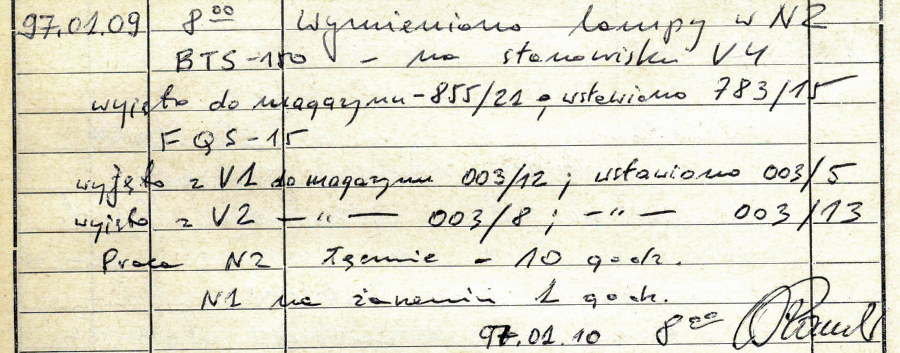 97.01.09 8⁰⁰ Wymieniono lampy w N2
BTS-150 - na stanowisku V4
wyjęto do magazynu - 855/21, wstawiono 783/15
FQS-15
wyjęto z V1 do magazynu 003/12; wstawiono 003/5
wyjęto z V2 — " — 003/8; — " — 003/13
Praca N2 łącznie - 10 godz.
N1 na żarzeniu 1 godz.
97.01.10 8⁰⁰